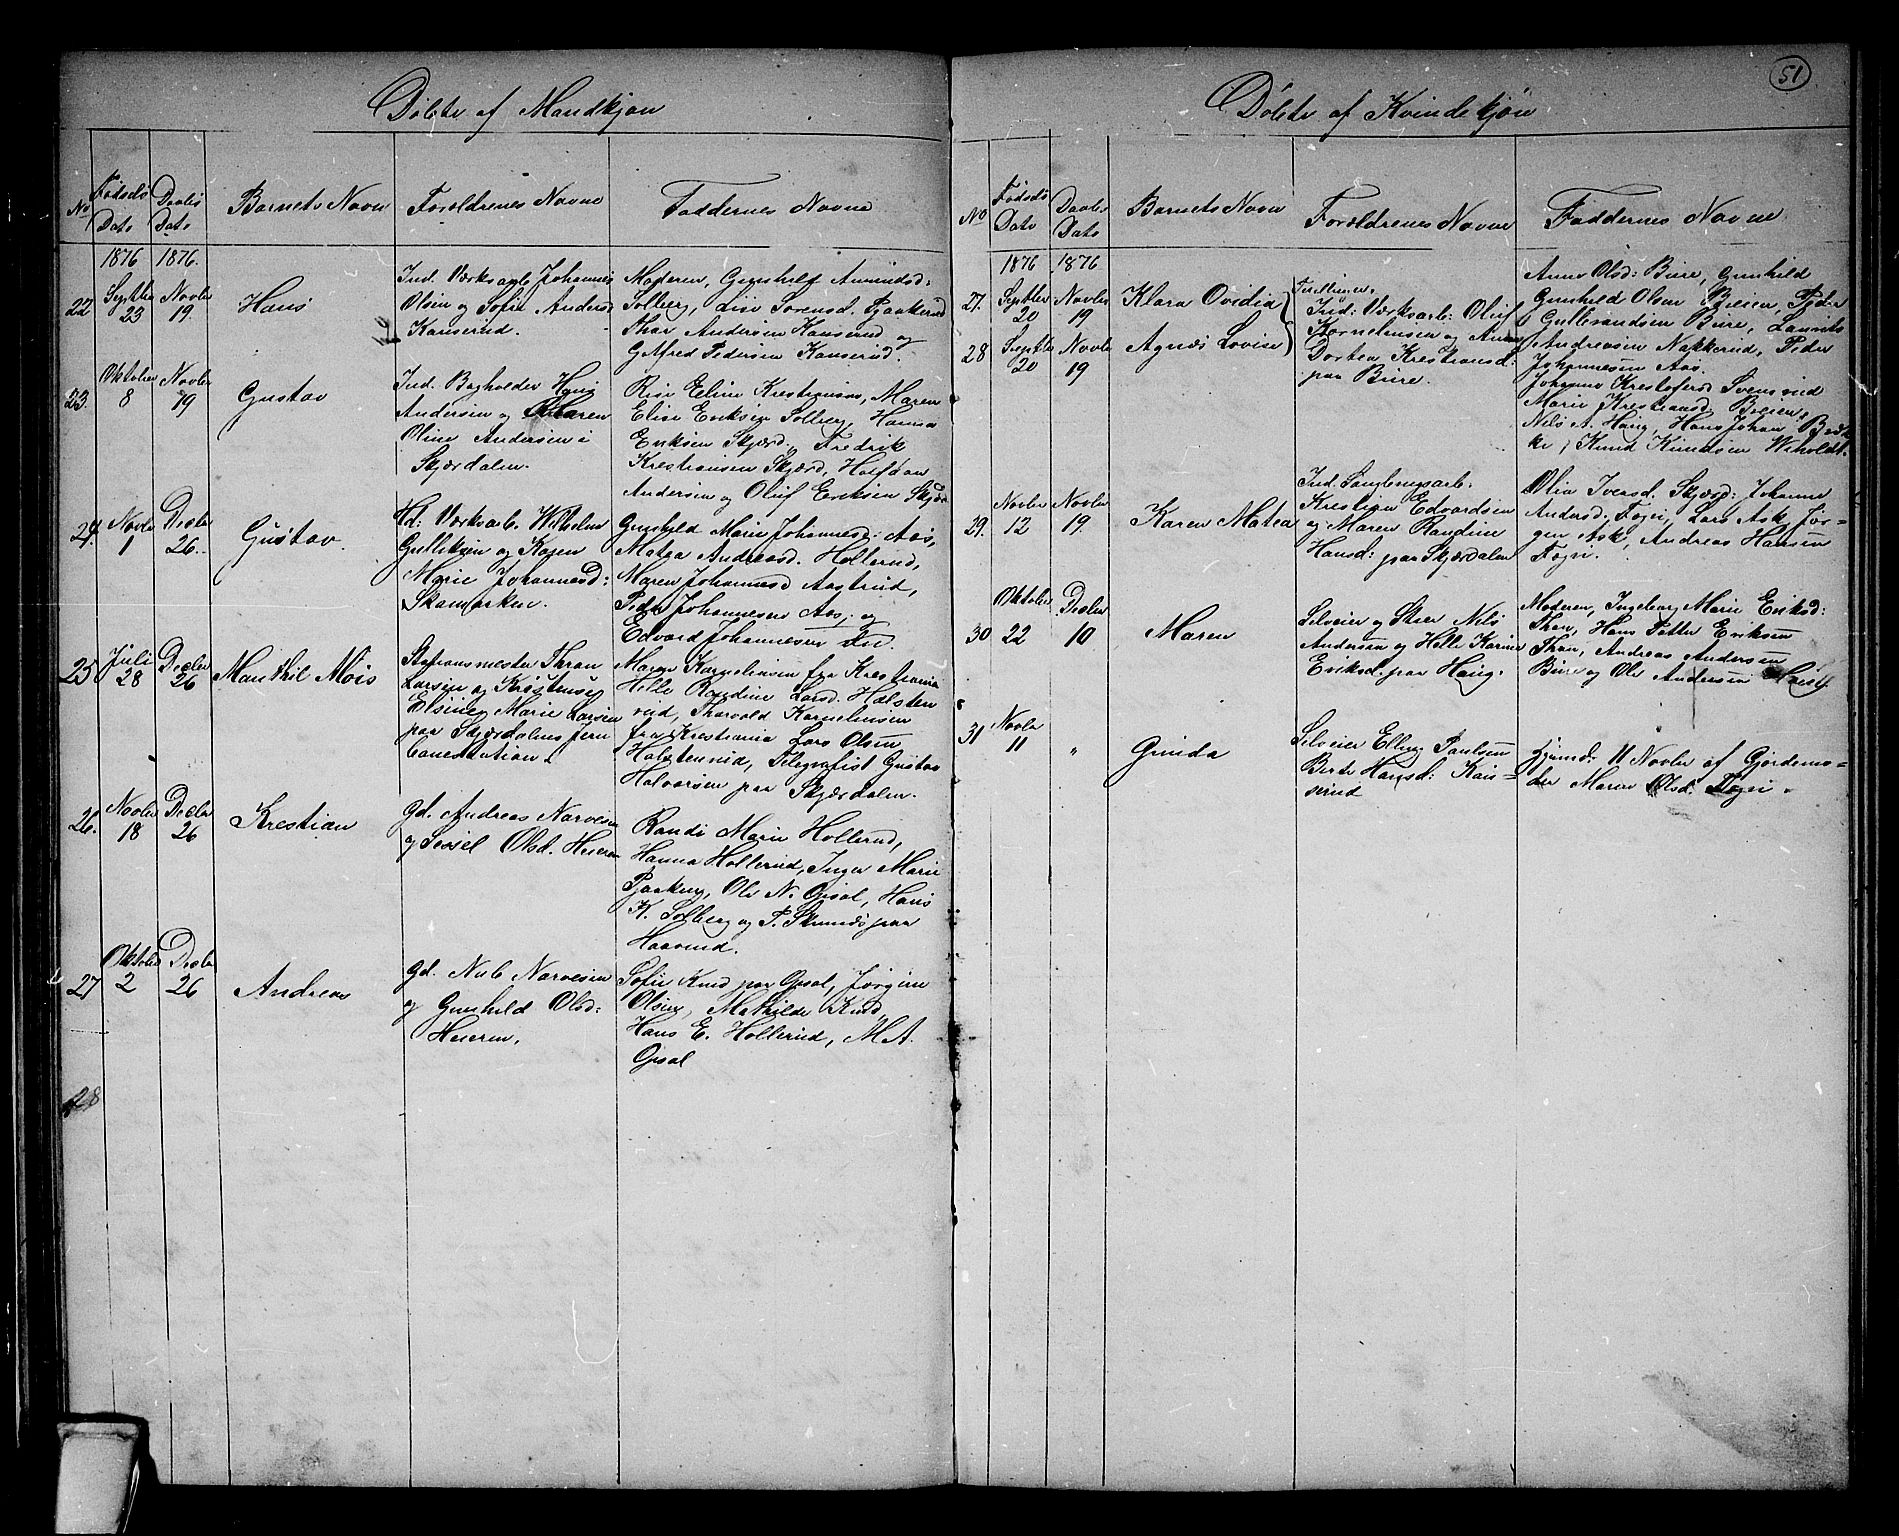 Døbte af Mandkjøn
No
Fødsels Dato
Daabs Dato
Barnets Navn
Forældrenes Navne
Faddernes Navne
1876 1876.
22
Septber 23
Novber 19.
Hans
Ind. Værksarb. Johannes
Olsen og Sofie Andersd.
Kanserud.
Moderen, Gunhild Amundsd:
Solberg, Lise Sørensd. Pjaakerud
Thor Andersen Kanserud og
Gelfred Pedersen Kanserud.
23.
Oktober 8
Novbr 19
Gustav
Ind. Bogholder Hans
Andersen og Maren
Oline Andersen i
Skjærdalen.
Eline Krestiansen, Maren
Elise Eriksen Solberg, Hanna
Eriksen Skjærd., Fredrik
Krestiansen Skjærd, Halfdan
Andersen og Oluf Eriksen Skjær
24.
Novbr 1
Decbr 26.
Gustav.
Værksarb. Wilhelm
Gulliksen og Karen
Marie Johannesd:
Skamarken.
Gunhild Marie Johannesd: Aas,
Matea Andreasd. Hollerud,
Maren Johannesd Aastrud,
Peder Johannesen Aas, og
Edvard Johannesen
25
Juli 28
Decbr 26
Manthil Mois
Stationsmester Thron
Larsen og
Elsine Marie Larsen
paa Skjærdalens Jern
banestation.
Maren Karneliusen fra Krestiania
Helle Randine Larsd. Halsten
rud, Thorvald Karneliusen
fra Krestiania Lars Olsen
Halstenrud, Telegrafist Gustav
Halvorsen paa Skjærdalen.
26.
Novber 18
Decbr 26
Krestian
Gd. Andreas Narvesen
og Sessel Olsd. Hieren
Randi Marie Hollerud,
Hanna Hollerud, Inger Marie
Pjaakerud, Ole N. Opsal, Hans
K. Solberg og P. paa
Haavrud.
27
Oktober 2
Decbr 26
Andreas
Gd. Nils Narvesen
og Gunhild Olsd:
Hieren,
Sofie Knud paa Opsal, Jørgine
Olsen, Mathilde Knud,
Hans E. Hollerud, M. A.
Opsal
28
51
Døbte af Kvindekjøn
No
Fødsels Dato
Daabs Dato
Barnets Navn
Forældrenes Navne
Faddernes Navne
1876 1876
27.
Septber 20
Novbr 19
Klara Ovidia
28
Septber 20
Novbr 19
Agnes Lovise
Tvillinger.
Ind: Værksarb: Oluf
Kornelinsen og Anne
Dortea Krestiansd.
paa Bure.
Anne Olsd: Bure, Gunhild
Gunhild Olsen Breien, Peder
Gulbrandsen Bure, Laurits
Andreasen Nakkerud, Peder
Johannesen Aas.
Johanne Kristofersd Svensrud
Marie Krestiansd, Breien,
Nils A. Haug, Hans Johan Bræk
ke, Knud Knudsen Weholdt.
39.
Novbr 12
Novbr 19
Karen Matea
Ind. Langbrugsarb.
Krestian Edvardsen
og Maren Randine
Hansd: paa Skjærdalen
Olia Iversd. Skjærd: Johanne
Andersd. Togn, Lars Ask, Jør=
gen Ask, Andreas Hansen
Togn.
30
Oktober 22
Decbr 10
Maren
Selveier og Skier Nils
Andersen og Helle Karine
Eriksd. paa Haug.
Moderen, Ingeborg Marie Eriksd:
Thon, Hans Petter Eriksen
Thon, Andreas Andersen
Bure og Ole Andersen Haug
31
Novbr 11
"
Grinda
Selveier Elling Paulsen
Berte Hansd: Kan=
serud
Hjemd: 11 Novbr af Gjordemo=
der Maren Olsd. Togn.